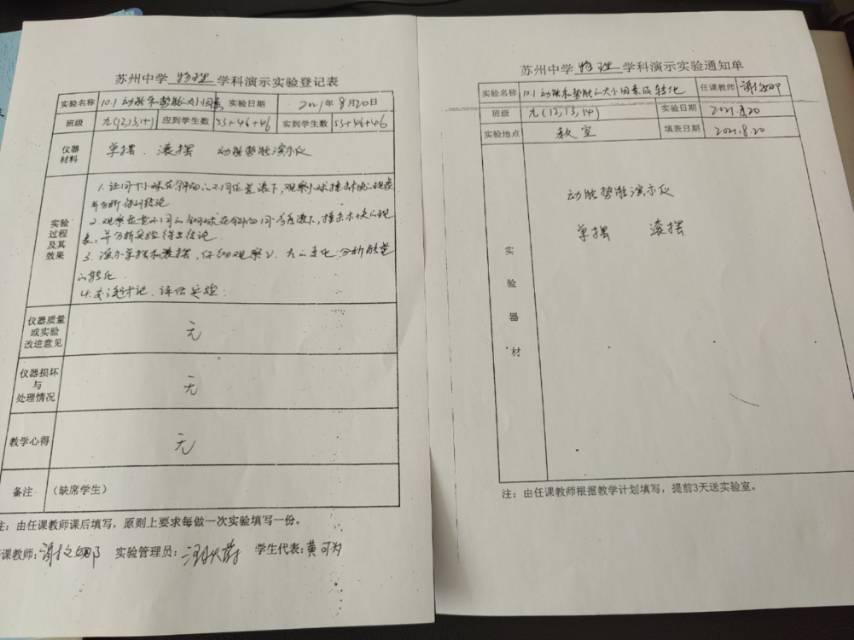 苏州中学 物理 学科演示实验登记表
实验名称 10.1 动能和势能大小因素 实验日期 2021年8月20日
班级 九(12,13,14) 应到学生数 53+46+46 实到学生数 53+46+46
仪器材料 单摆、滚摆 动能势能演示仪
实验过程及其效果
1. 让同一小球在斜面不同位置滚下,观察小球撞击木块
2. 观察质量不同的钢球在斜面同一高度滚下,撞击木块的现
象,并分析实验得出结论
3. 演示单摆和滚摆,仔细观察 分析能量
的转化
4. 交流讨论、评估实验.
仪器质量或实验改进意见 无
仪器损坏与处理情况 无
教学心得 无
备注 (缺席学生)
注:由任课教师课后填写,原则上要求每做一次实验填写一份。
课教师: 实验管理员: 学生代表:黄可为
苏州中学 物理 学科演示实验通知单
实验名称 10.1 动能和势能大小因素及转化 任课教师
班级 九(12,13,14) 实验日期 2021.8.20
实验地点 教室 填表日期 2021.8.20
实验器材
动能势能演示仪
单摆 滚摆
注:由任课教师根据教学计划填写,提前3天送实验室。